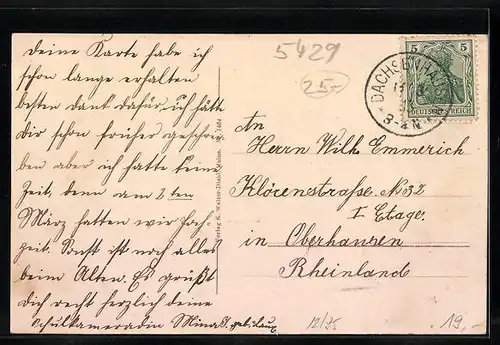 Deine Karte habe ich
schon lange erhalten
besten Dank dafür, ich hätte
Dir schon früher geschrie
ben aber ich hatte keine
Zeit, denn am 2 ten
März hatten wir Hoch-
zeit. Sonst ist noch alles
beim Alten. Es grüßt
Dich recht herzlich deine
Schulkameradin Mina
5429
25-
5 5
DACHSENHAUSEN
3-4 N
DEUTSCHES REICH
An
Herrn Wilh. Emmerich
Klörenstraße № 32
I Etage.
in Oberhausen
Rheinland
12/25
19,-